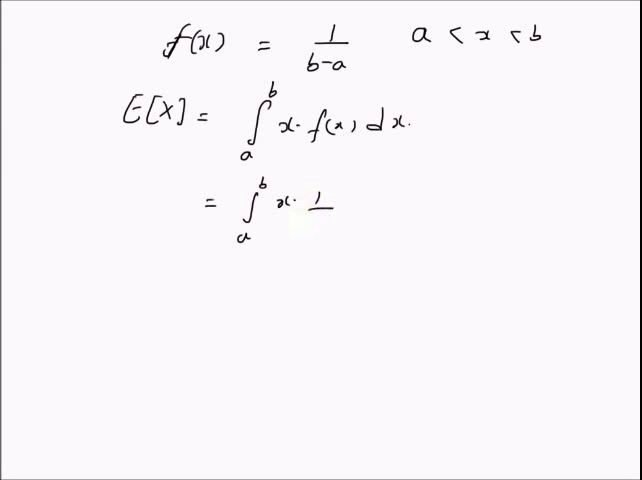 f(x) = 1/(b-a) a < x < b
E[X] = ∫_a^b x· f(x) dx.
= ∫_a^b x· 1/